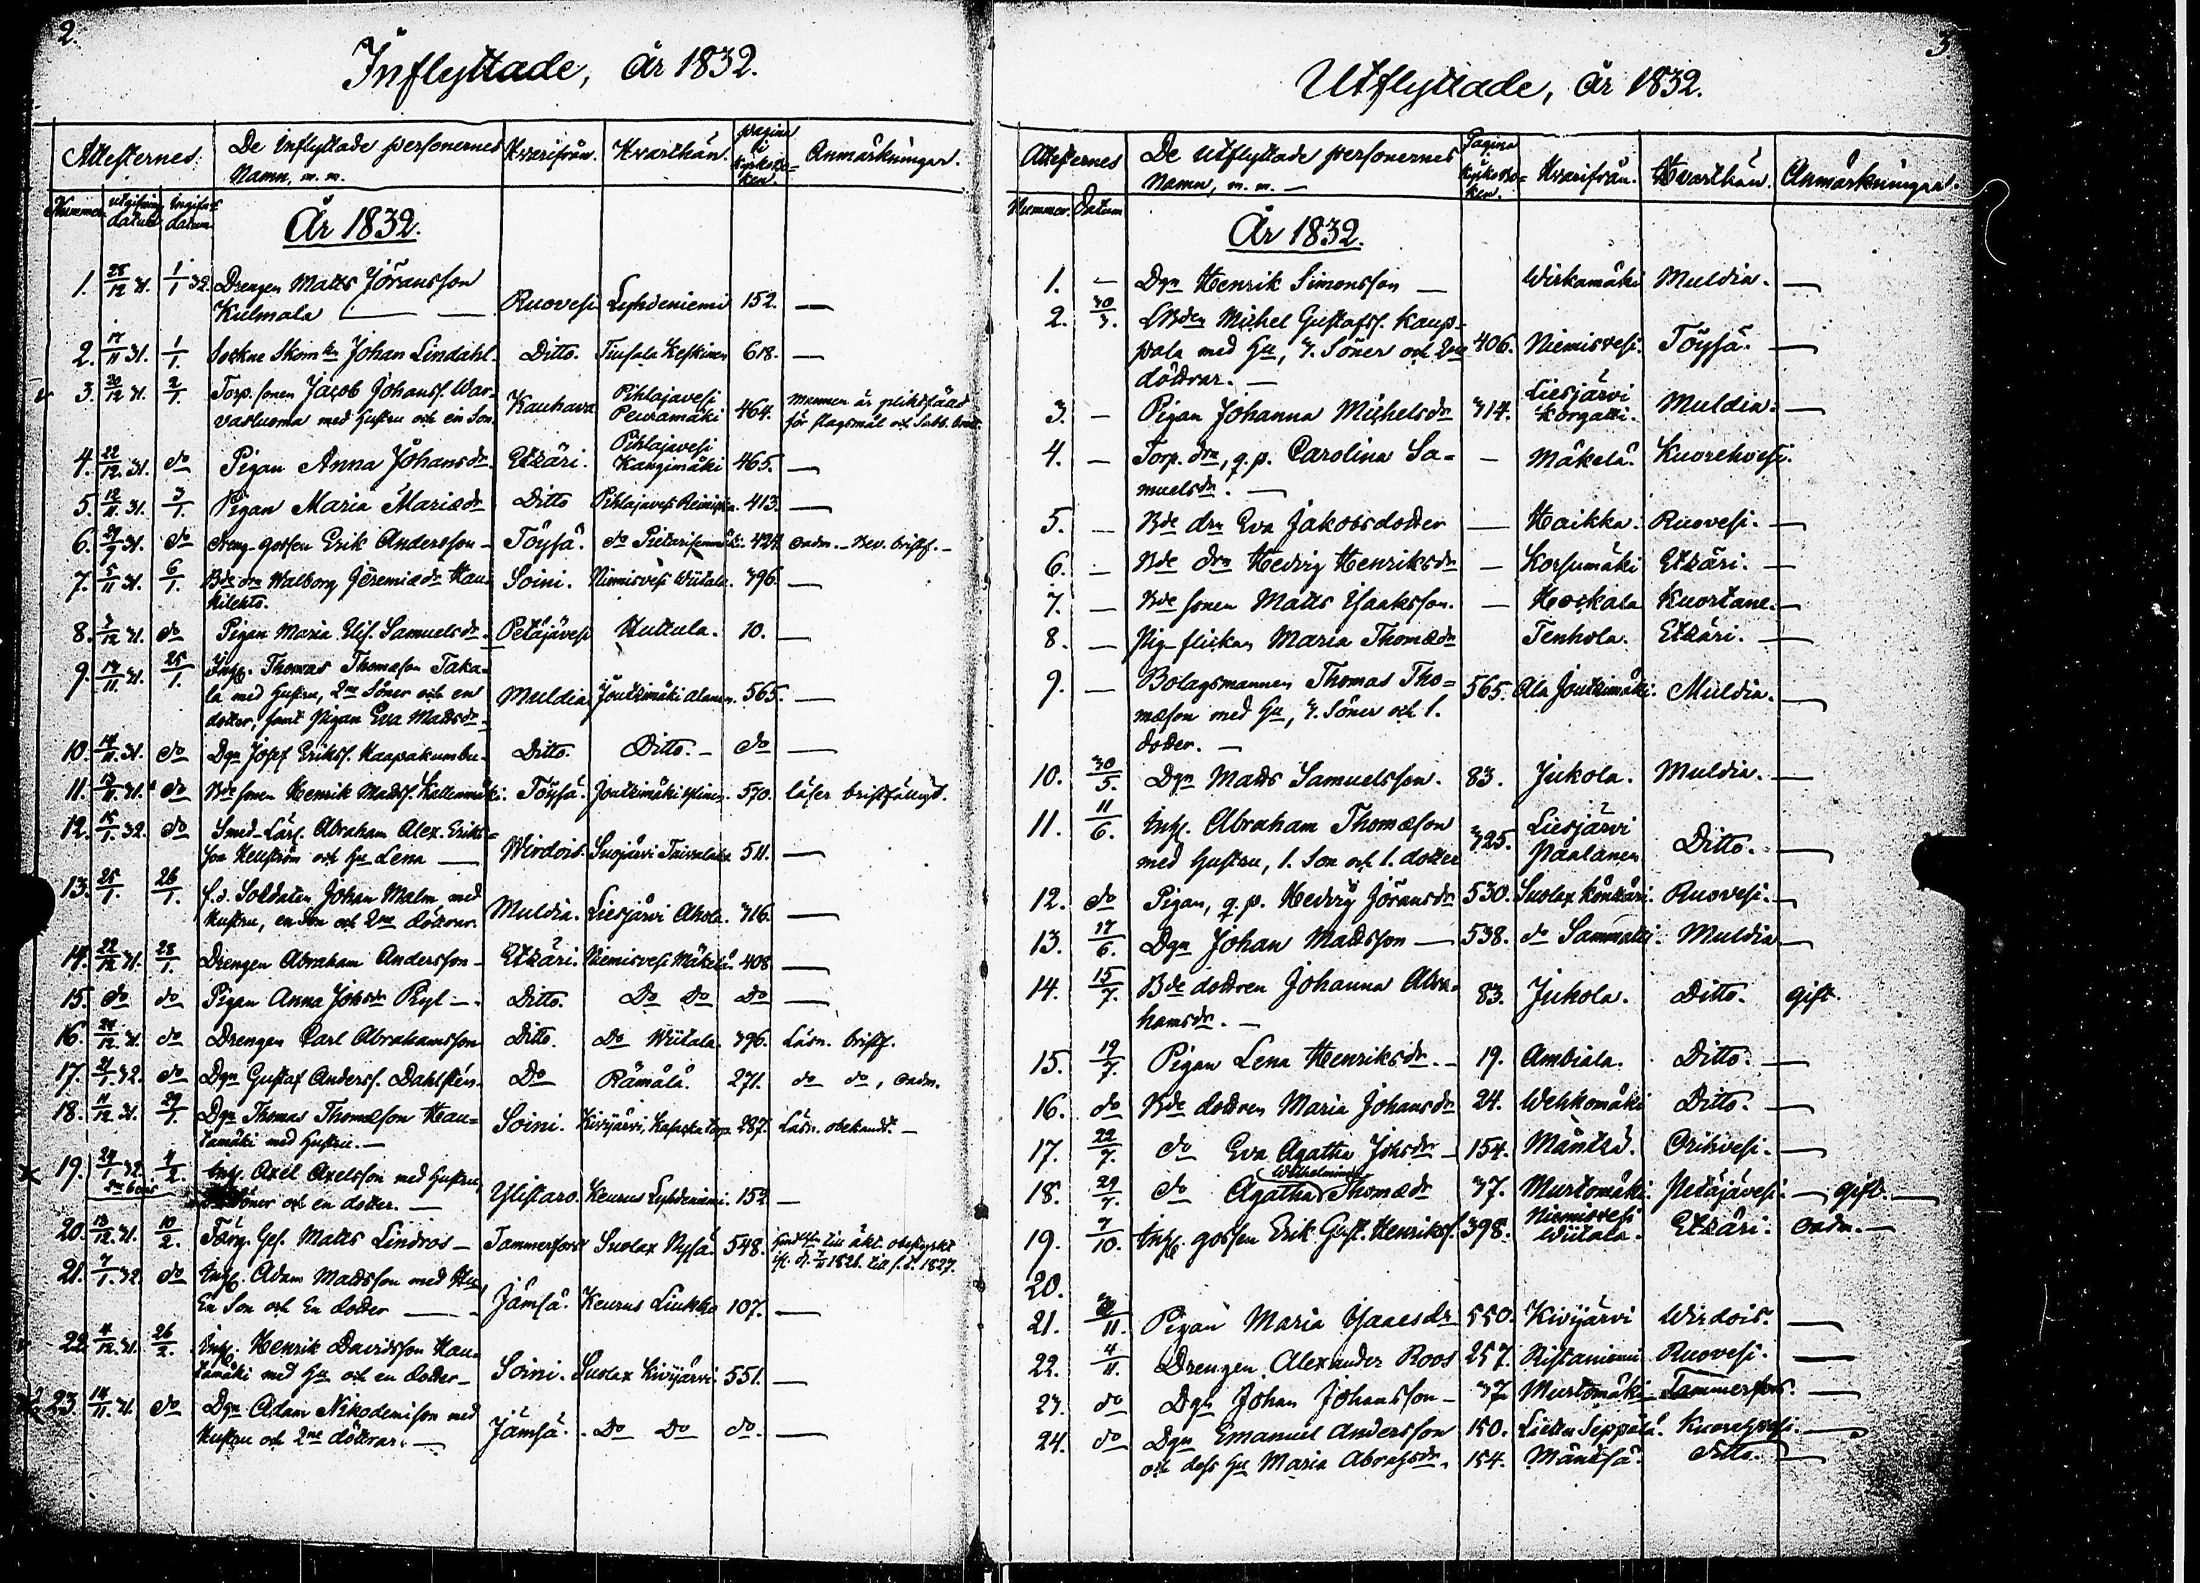 2.
Inflyttade, år 1832.
Attesternes
De Inflyttade personernes Namn, m. m.
Hvarifrån.
Hvarthän.
pagina i kyrkoboken.
Anmärkningar.
Nummer
utgifnings datum
Ingifvets datum
År 1832.
1. 28/12 31. 1/1 32. Drengen Matts Jöransson
Kulmala — Ruovesi Lyhdeniemi 152. —
2. 17/11 31. 1/1. Sockne Skom. Johan Lindahl. Ditto. Tiusala Keskinen 618. —
3. 20/12 31. 2/1. Torp. sonen Jacob Johanss. War-
vasluoma med hustru och en Son. Kauhava Pihlajavesi Peuramäki 464. mannen är pliktfäld
för slagsmål och Sabb. brott
4. 22/12 31. do Pigan Anna Johansdr. Etzäri. Pihlajavesi Kangimäki 465. —
5. 12/11 31. 3/1. Pigan Maria Mariædr Ditto Pihlajavesi 413. —
6. 29/9 31. do dreng-gossen Erik Andersson — Töysä. do 424. oadm. — Bev. bristf. —
7. 5/11 31. 6/1. Bde drn Walborg Jeremiædr Hau-
kilehto. Soini. Niemisvesi Wiitala. 396. —
8. 3/12 31. do Pigan Maria Elis. Samuelsdr. Petäjävesi Huttula. 10. —
9. 14/11 31. 25/1. Inh. Thomas Thomæson Taka-
la med hustru, 2ne Söner och en
dotter, samt Pigan Eva Mattsdr. Muldia Joutsimäki alanen. 565. —
10. 14/11 31. do Dgn Josef Erikss. Haapakumbu. Ditto. Ditto. — do —
11. 13/11 31. do Bde sonen Henrik Mattss. Kallenmäki. Töysä. Joutsimäki ylinen. 570. läser bristfälligt.
12. 15/1 32. do Smed-Lärl. Abraham Alex. Eriks-
son Hellström och hu Lena — Wirdois. Suojärvi 511. —
13. 25/1. 26/1. f. d. Soldaten Johan Malm, med
hustru, en Son och 2ne döttrar. Muldia. Liesjärvi Ahola. 316. —
14. 22/12 31. 28/1. Drengen Abraham Andersson — Etzäri. Niemisvesi Mäkelä. 408 —
15. do do Pigan Anna Johsdr Ryl —. Ditto. Do do do —
16. 24/12 31. do Drengen Carl Abrahamsson Ditto. Do Wiitala. 396. Läsn. bristf.
17. 21/1 32. do Dgn Gustaf Anderss. Dahlstén. Do Rämälä. 271. do do, oadm.
18. 11/12 31. 29/1. Dgn Thomas Thomæson Hau-
tamäki med hustru. — Soini. Kivijärvi, 287. Läsn. obekandt. —
19. 24/1 32. 4/2. Inh. Axel Axelsson med hustru,
Söner och en dotter. — Ylistaro. Keurus Lyhdeniemi. 152. —
20. 13/12 31. 10/2. Färg. Ges. Matts Lindros — Tammerfors Suolax Nysä. 548. till äkt. obehindrat
1826. till 1827.
21. 7/1 32. do Inh. Adam Mattsson med Hu,
En Son och En dotter — Jämsä. Keurus Liukko 107. —
22. 4/12 31. 26/2. Inh. Henrik Davidsson Hau-
tamäki med hu och en dotter — Soini. Suolax Kivijärvi 551. —
23. 14/11 31. do Dgn Adam Nikodemison med
hustru och 2ne döttrar. — Jämsä. Do Do do. —
3
Utflyttade, år 1832.
Attesternes
De utflyttade personernes Namn, m. m. —
Pagina i kyrkoboken.
Hvarifrån.
Hvarthän.
Anmärkningar.
Nummer. Datum
År 1832.
1. — Dgn Henrik Simonsson — Wirkamäki Muldia. —
2. 30/3. Bden Michel Gustafss. Kaup-
pala med Hu, 3. Söner och 2ne
döttrar. — 406. Niemisvesi. Töysä. —
3. — Pigan Johanna Michelsdr 314. Liesjärvi Korgatti. Muldia. —
4. — Torp. drn, q. p. Carolina Sa-
muelsdr. — — Mäkelä. Kuorehvesi.
5. — Bde drn Eva Jakobsdotter — Haikka. Ruovesi. —
6. — Bde drn Hedvig Henriksdr — Korsumäki Etzäri. —
7. — Bde sonen Matts Isaaksson. — Hoskala Kuortane. —
8. — Pig-flickan Maria Thomædr Tenhola. Etzäri. —
9. — Bolagsmannen Thomas Tho-
mæson med Hu, 3. Söner och 1.
dotter. — 565. Ala Joutsimäki. Muldia. —
10. 30/5. Dgn Matts Samuelsson. 83. Jukola. Muldia. —
11. 11/6. Inh. Abraham Thomæson
med hustru, 1. Son och 1. dotter 325. Liesjärvi Paalanen Ditto. —
12. do Pigan, q. p. Hedvig Jöransdr 530. Suolax Könkäri. Ruovesi. —
13. 17/6. Dgn Johan Mattsson — 538. do Sammatti. Muldia —
14. 15/7. Bde dottren Johanna Abra-
hamsdr. — 83. Jukola. Ditto. gift.
15. 19/7. Pigan Lena Henriksdr. — 19. Ambiala. Ditto. —
16. do Bde dottren Maria Johansdr 24. Wehkomäki Ditto. —
17. 22/7. do Eva Agatha Johsdr — 154. Mänttä. Orihvesi. —
18. 29/7. do Agatha Wilhelmina Thomædr 37. Murtomäki. Petäjävesi. — gift. —
19. 7/10. Inh. gossen Erik Gust. Henrikss. 398. Niemisvesi Wiitala. Etzäri. oadm. —
20.
21. /11. Pigan Maria Isaacsdr 550. Kivijärvi Wirdois. —
22. 4/11. Drengen Alexander Roos 257. Ristaniemi Ruovesi. —
23. do Dgn Johan Johansson — 37. Murtomäki Tammerfors. —
24. do Dgn Emanuel Andersson 150. Lietu Seppälä. Kuorehvesi. —
och dess Hu Maria Abrahsdr. 154. Mänttä. Ditto. —